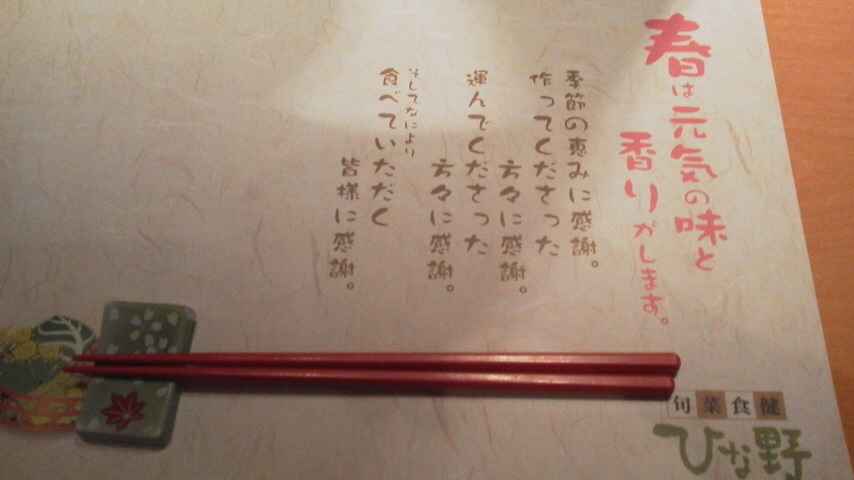 春は元気の味と
香りがします。
季節の恵みに感謝。
作ってくださった
方々に感謝。
運んでくださった
方々に感謝。
そしてなにより
食べていただく
皆様に感謝。
旬菜食健
ひな野